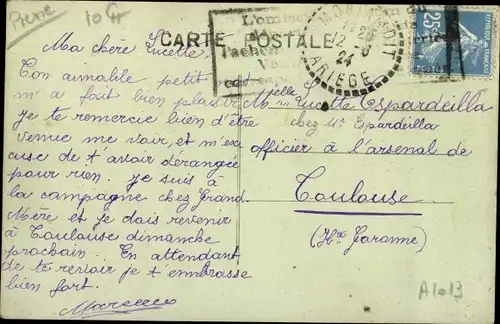 Prune
10 Ft
CARTE POSTALE
L'omis
l'ache
12 - 8
24
ARIEGE
25
REPUBLIQUE FRANÇAISE
Ma chère Lucette,
Ton aimable petit
m'a fait bien plaisir
je te remercie bien d'être
venue me voir, et m'ex
cuse de t'avoir dérangée
pour rien. Je suis à
la campagne chez Grand
Mère et je dois revenir
à Toulouse dimanche
prochain. En attendant
de te revoir je t'embrasse
bien fort.
Melle Lucette Espardeilla
chez Mr Espardeilla
officier à l'arsenal de
Toulouse
(Hte Garonne)
A1013